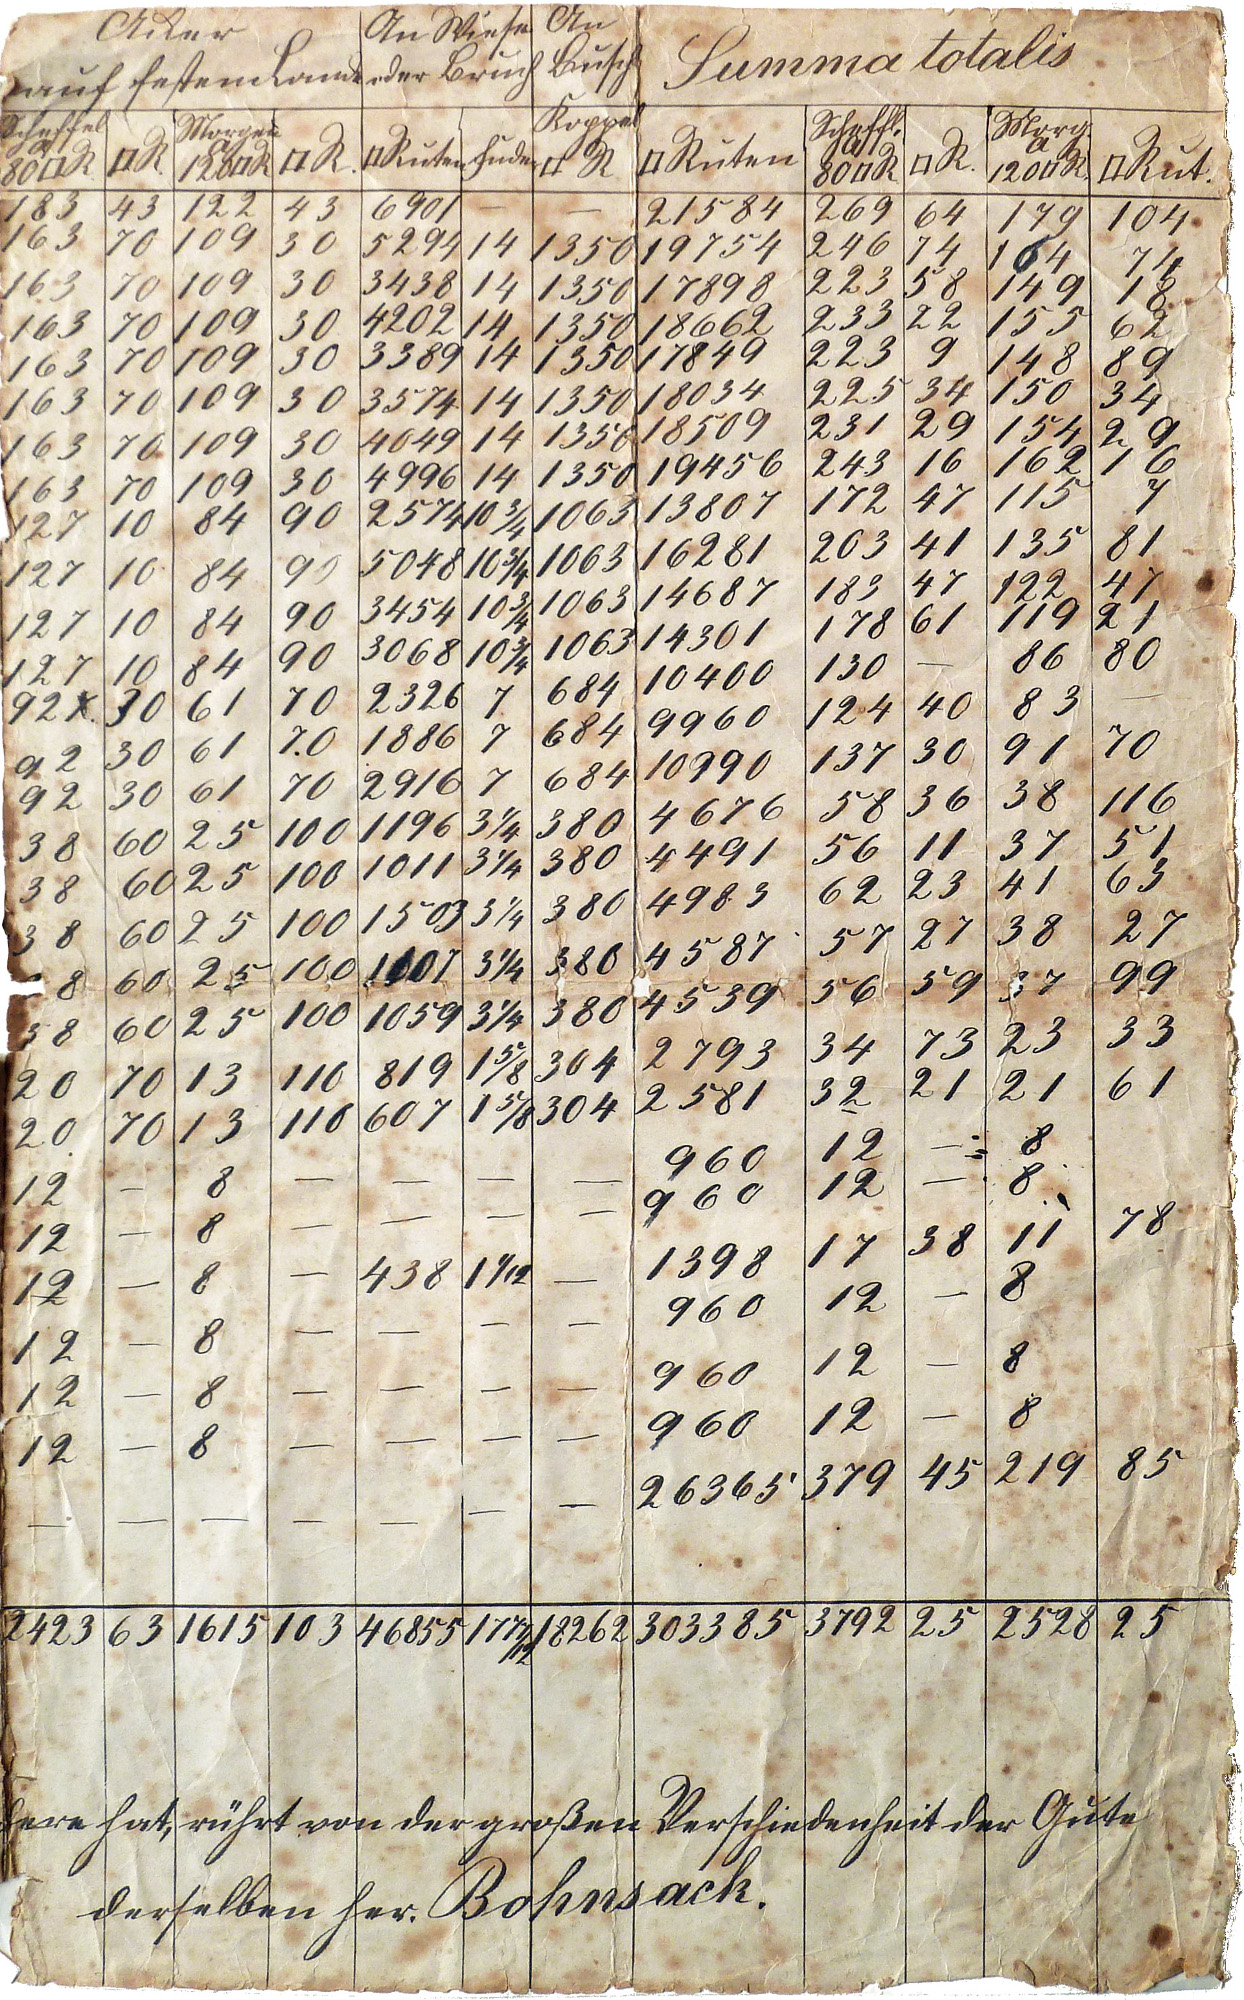 Acker An Wiese An Summa totalis
auf festem Lande oder Bruch Busch
Koppel
Scheffel Morgen Scheffl. Morg.
a a a
80□R □R. 120□R □R. □Ruten Fuder □R □Ruten 80□R □R. 120□R □Rut.
183 43 122 43 6901 — — 21584 269 64 179 104
163 70 109 30 5294 14 1350 19754 246 74 164 74
163 70 109 30 3438 14 1350 17898 223 58 149 18
163 70 109 30 4202 14 1350 18662 233 22 155 62
163 70 109 30 3389 14 1350 17849 223 9 148 89
163 70 109 30 3574 14 1350 18034 225 34 150 34
163 70 109 30 4049 14 1350 18509 231 29 154 29
163 70 109 30 4996 14 1350 19456 243 16 162 16
127 10 84 90 2574 10¾ 1063 13807 172 47 115 7
127 10 84 90 5048 10¾ 1063 16281 203 41 135 81
127 10 84 90 3454 10¾ 1063 14687 183 47 122 47
127 10 84 90 3068 10¾ 1063 14301 178 61 119 21
92 30 61 70 2326 7 684 10400 130 — 86 80
92 30 61 70 1886 7 684 9960 124 40 83 —
92 30 61 70 2916 7 684 10990 137 30 91 70
38 60 25 100 1196 3¼ 380 4676 58 36 38 116
38 60 25 100 1011 3¼ 380 4491 56 11 37 51
38 60 25 100 1503 3¼ 380 4983 62 23 41 63
8 60 25 100 1107 3¼ 380 4587 57 27 38 27
38 60 25 100 1059 3¼ 380 4539 56 59 37 99
20 70 13 110 819 1⅝ 304 2793 34 73 23 33
20 70 13 110 607 1⅝ 304 2581 32 21 21 61
12 — 8 — — — — 960 12 — 8
12 — 8 — — — — 960 12 — 8
12 — 8 — 438 1 1/12 — 1398 17 38 11 78
12 — 8 — — — — 960 12 — 8
12 — 8 — — — — 960 12 — 8
12 — 8 — — — — 960 12 — 8
— — — — — — — 26365 379 45 219 85
2423 63 1615 103 46855 177 7/12 18262 303385 3792 25 2528 25
dere hat, rührt von der großen Verschiedenheit der Güte
derselben her. Bohnsack.